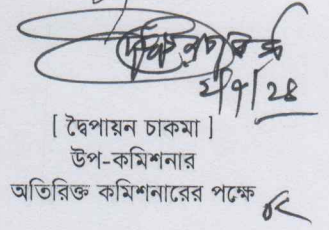 ২/৭/২৪
[ দ্বৈপায়ন চাকমা ]
উপ-কমিশনার
অতিরিক্ত কমিশনারের পক্ষে